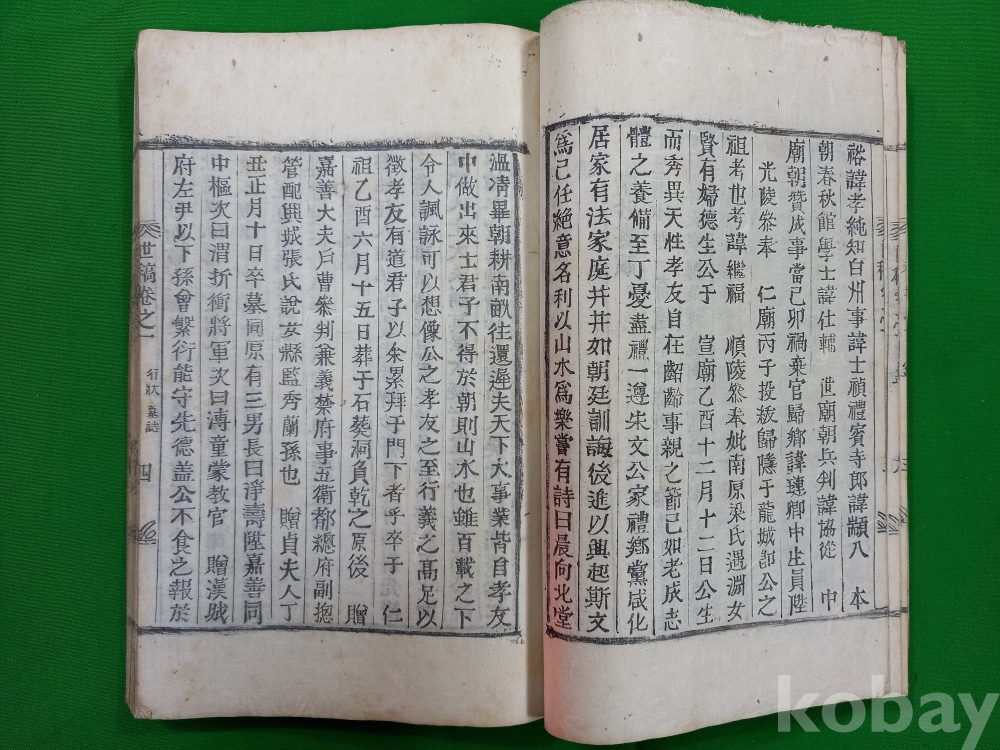 裕諱孝純知白州事諱士禎禮賓寺郎諱顓八 本
朝春秋館學士諱仕輔 世廟朝兵判諱協從 中
廟朝贊成事當己卯禍棄官歸鄕諱璉卿中生員陞
光陵叅奉 仁廟丙子投紱歸隱于龍城卽公之
祖考也考諱繼福 順陵叅奉妣南原梁氏遇淵女
賢有婦德生公于 宣廟乙酉十二月十二日公生
而秀異天性孝友自在齠齡事親之節已如老成志
體之養備至丁憂盡禮一遵朱文公家禮鄕黨咸化
居家有法家庭井井如朝廷訓誨後進以興起斯文
爲己任絶意名利以山水爲樂嘗有詩曰晨向北堂
溫凊畢朝耕南畝往還遲夫天下大事業皆自孝友
中做出來士君子不得於朝則山水也雖百載之下
令人諷詠可以想像公之孝友之至行義之高足以
徵孝友有道君子以余累拜于門下者乎卒于 仁
祖乙酉六月十五日葬于石葬洞負乾之原後 贈
嘉善大夫戶曹叅判兼義禁府事五衛都緫府副緫
管配興城張氏說女縣監秀蘭孫也 贈貞夫人丁
丑正月十日卒墓同原有三男長曰淨壽陞嘉善同
中樞次曰渭折衝將軍次曰溥童蒙教官 贈漢城
府左尹以下孫會繁衍能守先德盖公不食之報於
世稿卷之一 行狀 墓誌 四
kobay